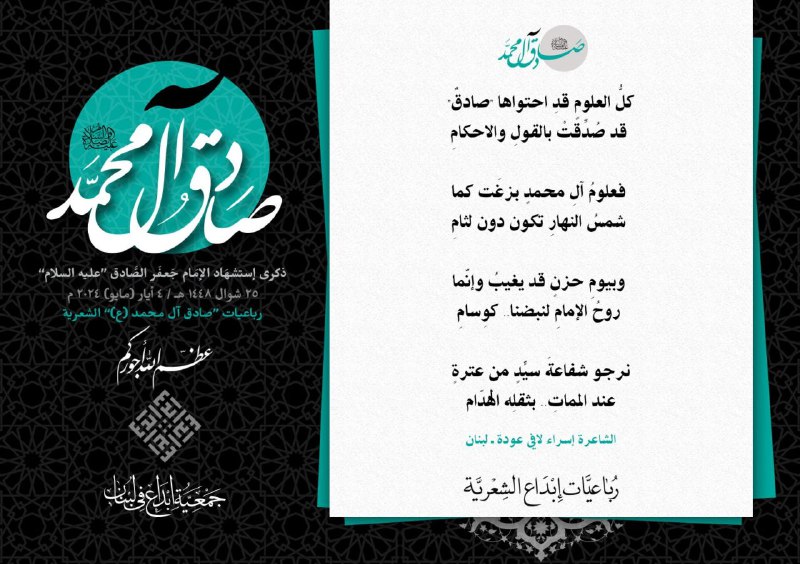 صادق آل محمد
كلُّ العلومِ قدِ احتواها "صادقٌ"
قد صُدِّقَتْ بالقولِ والاحكامِ
فعلومُ آلِ محمدٍ بزغَت كما
شمسُ النهارِ تكون دون لثامِ
وبيوم حزنٍ قد يغيبُ وإنّما
روحُ الإمامِ لنبضنا.. كوِسامِ
نرجو شفاعةَ سيِّدٍ من عترةٍ
عند المماتِ.. بثقلِه الهدّام
الشاعرة إسراء لافي عودة ـ لبنان
رُبَاعيَّات إبْدَاع الشِعْريَّة
صَادِق آل مُحمَّد
عليه السلام
ذكرى إستشهَاد الإمَام جَعفَر الصَّادق "عليه السلام"
٢٥ شوال ١٤٤٨ هـ / ٤ أيار (مايو) ٢٠٢٤ م
رباعيات "صادق آل محمد (ع)" الشعرية
عظم الله أجوركم
جَمْعِيَّة إبْدَاع في لبنان